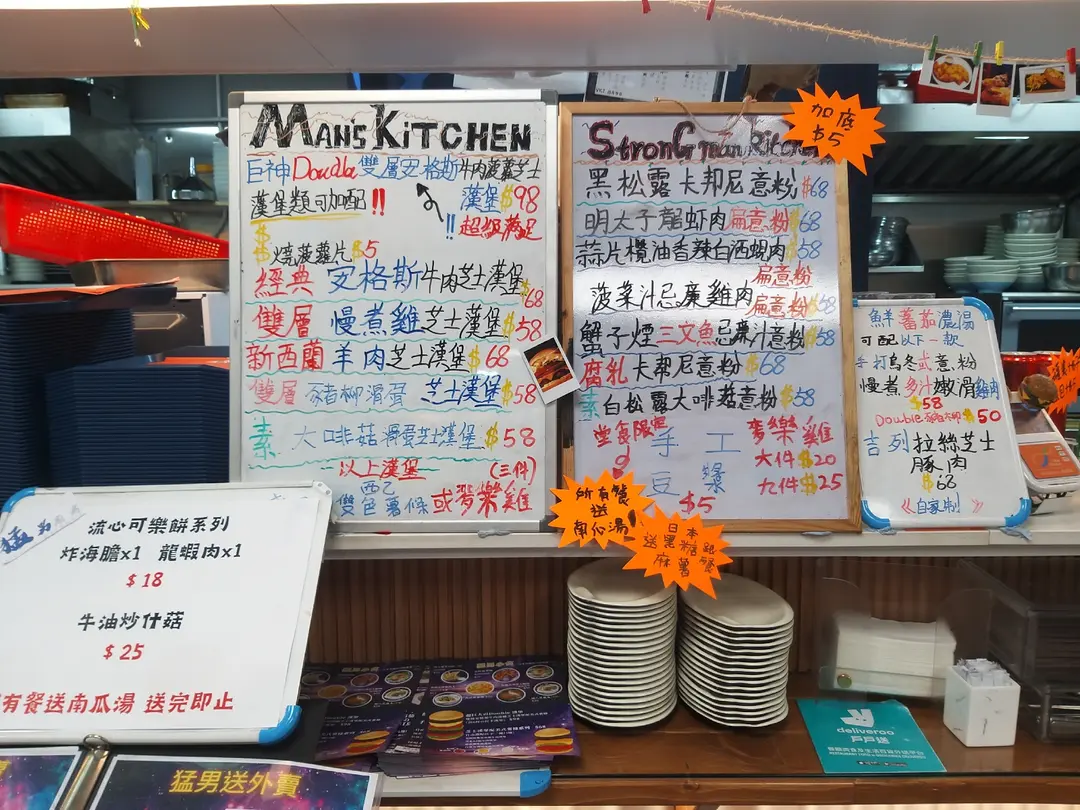 MAN'S KITCHEN
巨神Double雙層安格斯牛肉菠蘿芝士
漢堡$98
漢堡類可加配!!
!!超級滿足
燒菠蘿片$5
經典 安格斯牛肉芝士漢堡$68
雙層 慢煮雞芝士漢堡$58
新西蘭羊肉芝士漢堡$68
雙層 豬柳滑蛋 芝士漢堡$58
素 大啡菇滑蛋芝士漢堡$58
以上漢堡 (三件)
西己
雙色薯條 或麥樂雞
StronG man Kitchen
加底
$5
黑松露卡邦尼意粉$68
明太子蟹虾肉扁意粉$68
蒜片欖油香辣白酒蜆肉$58
扁意粉
菠菜汁忌廉雞肉
扁意粉$68
蟹子煙三文魚忌廉汁意粉$58
腐乳卡邦尼意粉$68
素白松露大啡菇意粉$58
堂食限定
手工
豆漿
$5
麥樂雞
大件$20
九件$25
所有餐
送
南瓜湯
日本
送黑糖跟餐
麻薯
鮮蕃茄濃湯
可配以下一款
手打烏冬或意粉
慢煮多汁嫩滑雞肉
$58
Double $50
吉列拉絲芝士
豚肉
$68
《自家制》
流心可樂餅系列
炸海膽x1 龍蝦肉x1
$18
牛油炒什菇
$25
有餐送南瓜湯 送完即止
猛男送外賣
deliveroo
戶戶送